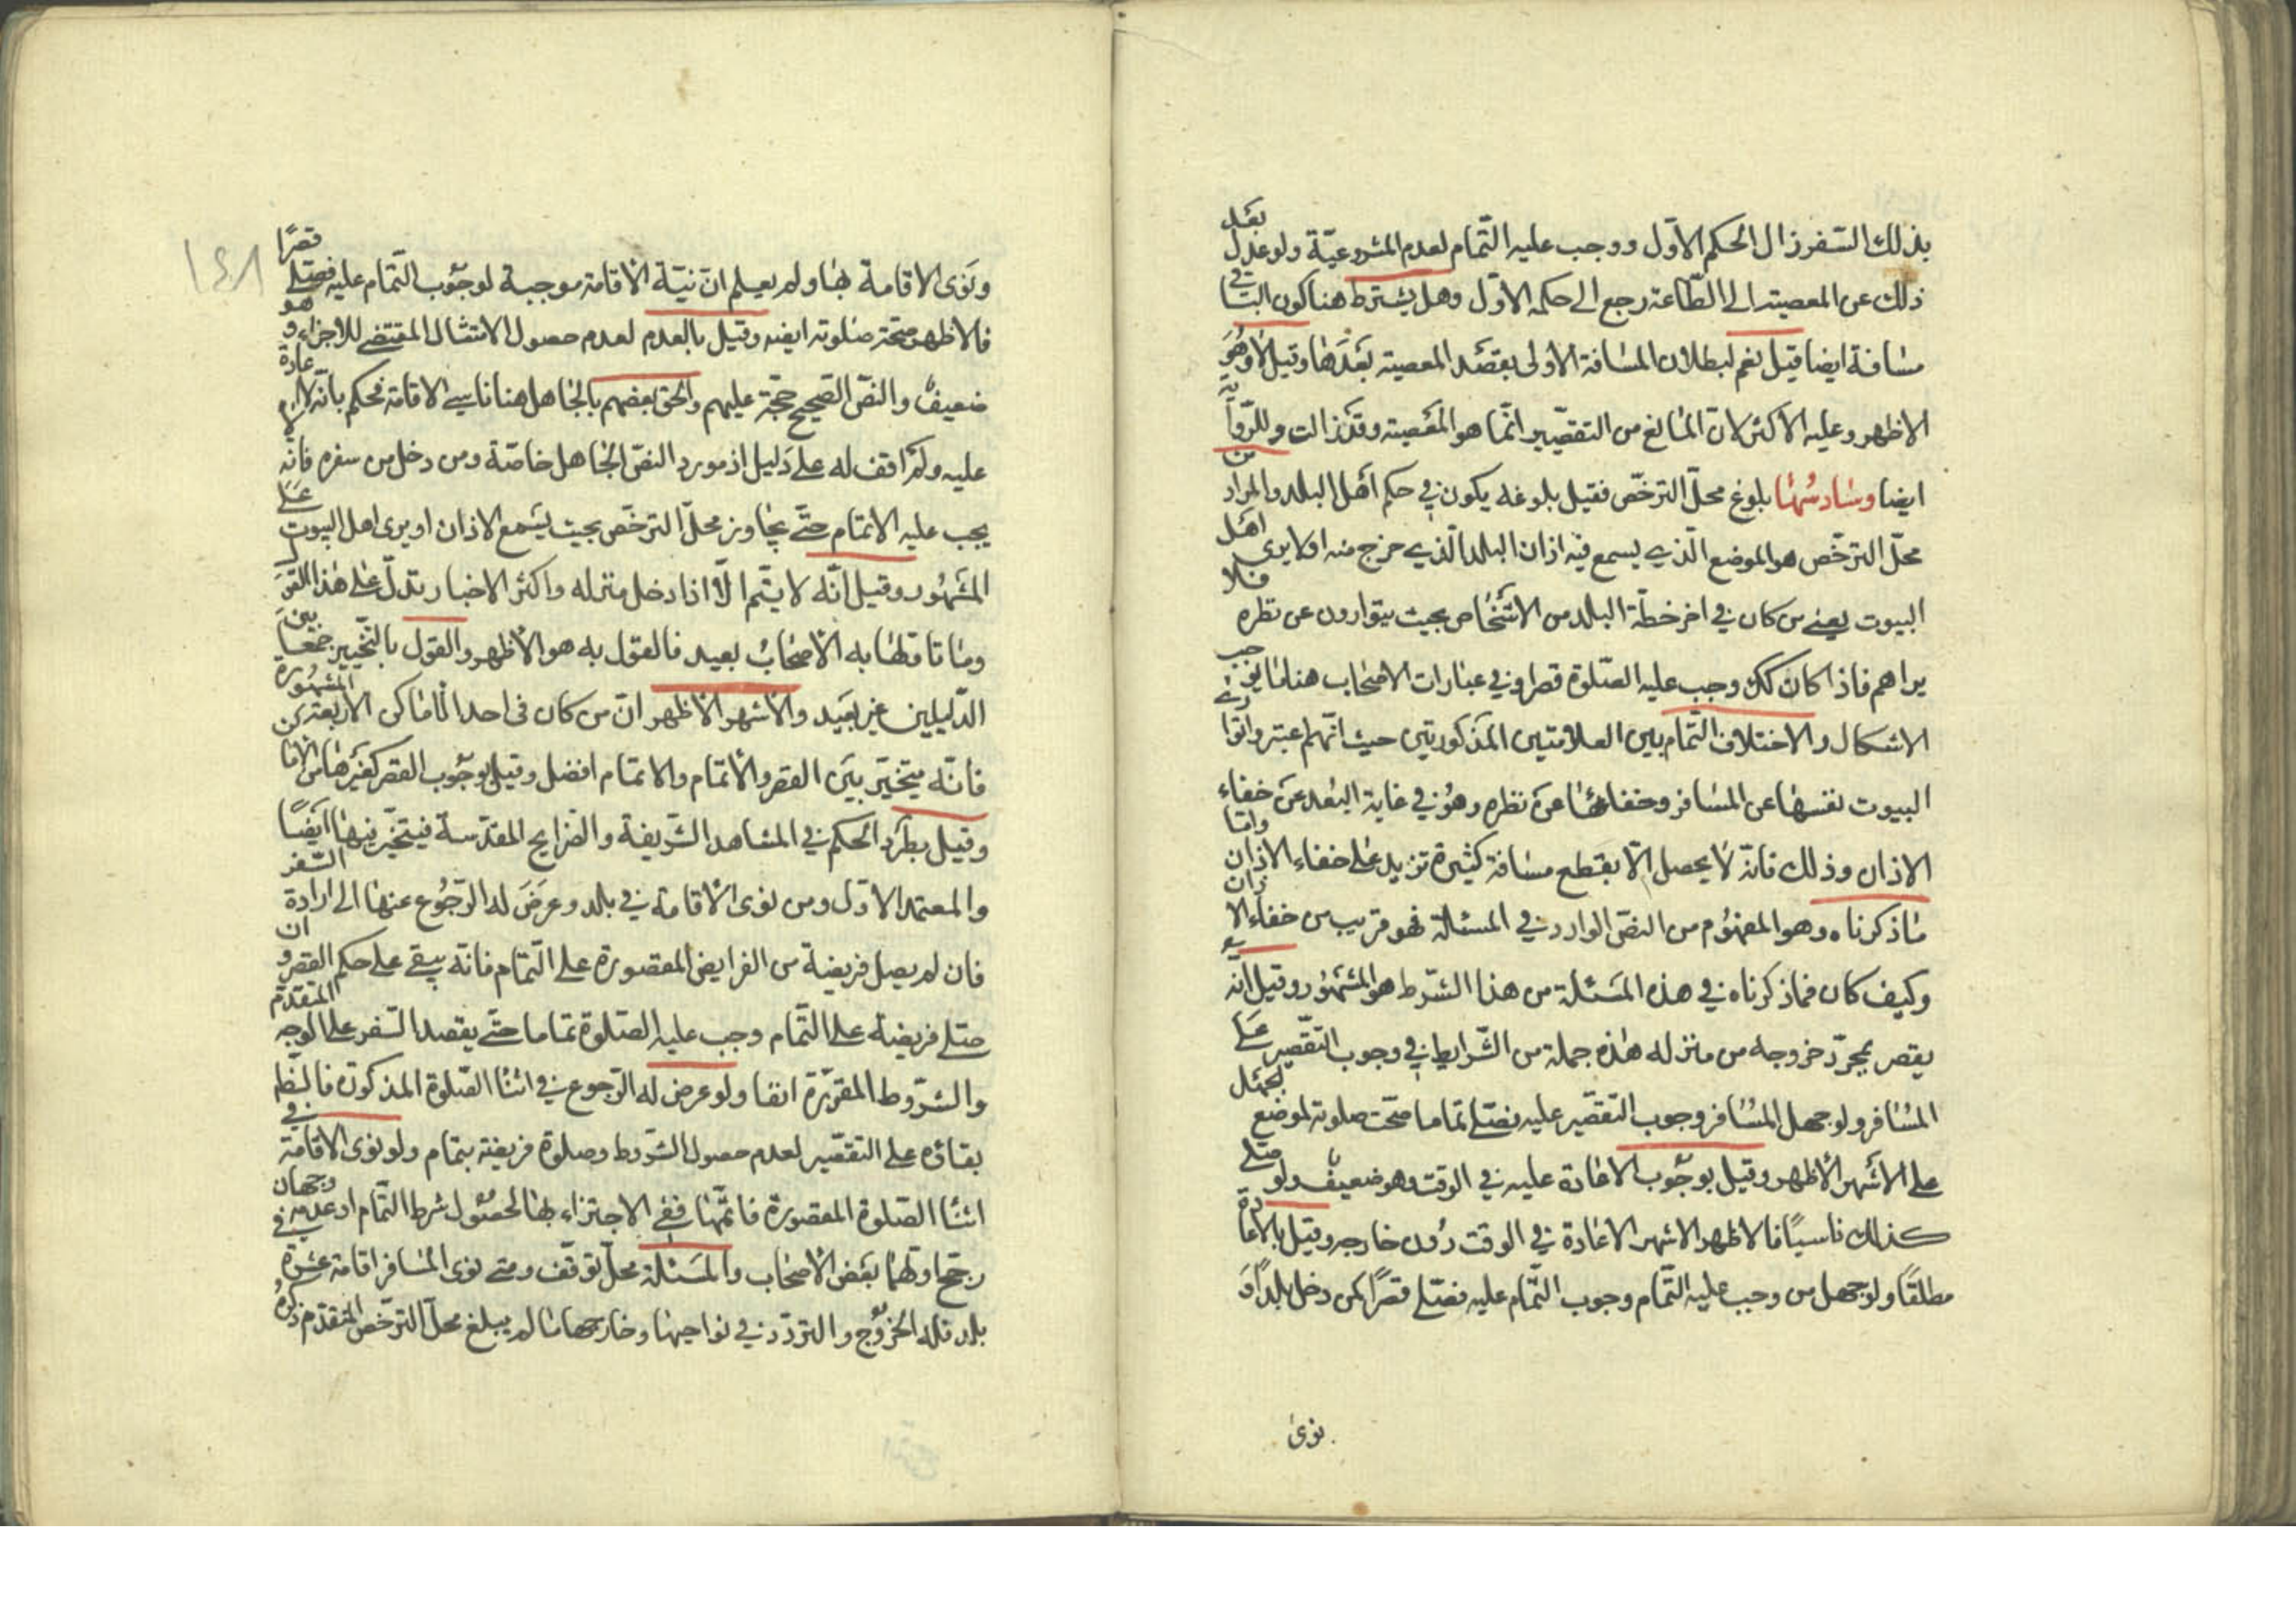 بذلك السّفر زال الحكم الاوّل ووجب عليه التّمام لعدم المشروعيّة ولو عدل بعد
ذلك عن المعصية الى الطّاعة رجع الى حكمه الاوّل وهل يشترط هنا كون الباقي
مسافة ايضا قيل نعم لبطلان المسافة الاولى بقصد المعصية بعدها وقيل لا وهو
الاظهر وعليه الاكثر لان المانع من التقصير انّما هو المعصية وقد زالت وللرّواية
ايضا وسادسها بلوغ محلّ الترخّص فقيل بلوغه يكون في حكم اهل البلد والمراد من
محلّ الترخّص هو الموضع الّذي يسمع فيه اذان البلد الّذي خرج منه او لا يرى اهل
البيوت يعني من كان في اخر خطّة البلد من الاشخاص بحيث يتوارون عن نظره فلا
يراهم فاذا كان كك وجب عليه الصّلوة قصرا وفي عبارات الاصحاب هنا ما يوجب
الاشكال والاختلاف التّمام بين العلامتين المذكورتين حيث انّهم اعتبروا توارى
البيوت نفسها عن المسافر وخفاءها عن نظره وهو في غاية البعد عن خفاء
الاذان وذلك فانّه لا يحصل الّا بقطع مسافة كثيرة تزيد على خفاء الاذان وامّا
ما ذكرناه وهو المفهوم من النصّ الوارد في المسئلة فهو قريب من خفاء الاذان
وكيف كان فما ذكرناه في هذه المسئلة من هذا الشّرط هو المشهور وقيل انّه
يقصر بمجرّد خروجه من منزله هذه جملة من الشّرايط في وجوب التّقصير على
المسافر ولو جهل المسافر وجوب التقصير عليه فصلّى تماما صحّت صلوته لموضع الجهل
على الاشهر الاظهر وقيل بوجوب الاعادة عليه في الوقت وهو ضعيف ولو صلّى
كذلك ناسيًا فالاظهر الاشهر الاعادة في الوقت دون خارجه وقيل بالاعادة
مطلقًا ولو جهل من وجب عليه التّمام وجوب التّمام عليه فصلّى قصرًا كمن دخل بلدًا و
نوى
ونوى الاقامة بها ولم يعلم انّ نيّة الاقامة موجبة لوجوب التّمام عليه فصلّى قصرًا
فالاظهر صحّة صلوته ايضه وقيل بالعدم لعدم حصول الامتثال المقتضي للاجزاء وهو
ضعيف والنصّ الصّحيح حجّة عليهم والحق بعضهم بالجاهل هنا ناسي الاقامة فحكم بانّه لا اعادة
عليه ولم اقف له على دليل اذ مورد النصّ الجاهل خاصّة ومن دخل من سفره فانّه
يجب عليه الاتمام حتّى يتجاوز محلّ الترخّص بحيث يسمع الاذان او يرى اهل البيوت على
المشهور وقيل انّه لا يتّم الّا اذا دخل منزله واكثر الاخبار تدلّ على هذا القول
وما تاوّلها به الاصحاب بعيد فالقول به هو الاظهر والقول بالتّخيير جمعا بين
الدّليلين غير بعيد والاشهر الاظهر انّ من كان في احد الاماكن الاربعة المشهورة
فانّه يتخيّر بين القصر والاتمام والاتمام افضل وقيل بوجوب القصر كغيرها من الاماكن
وقيل بطرد الحكم في المشاهد الشّريفة والضّرايح المقدّسة فيتخيّر فيها ايضًا
والمعتمد الاوّل ومن نوى الاقامة في بلد وعرض له الرّجوع عنها الى ارادة السّفر
فان لم يصل فريضة من الفرايض المقصورة على التّمام فانّه يبقى على حكم القصر وان
صلّى فريضة على التّمام وجب عليه الصّلوة تماما حتّى يقصد السّفر على الوجه المتقدّم
والشّروط المقرّرة انفا ولو عرض له الرّجوع في اثناء الصّلوة المذكورة فالظّ
بقاؤه على التقصير لعدم حصول الشّروط وصلوة فريضة بتمام ولو نوى الاقامة في
اثناء الصّلوة المقصورة فاتمّها ففي الاجتزاء بها لحصول شرط التّمام او عدمه وجهان
رجّح اولهما بعض الاصحاب والمسئلة محلّ توقّف ومتى نوى المسافر اقامة عشرة في
بلد فله الخروج والتردّد في نواحيها وخارجها ما لم يبلغ محلّ الترخّص المتقدّم ذكره